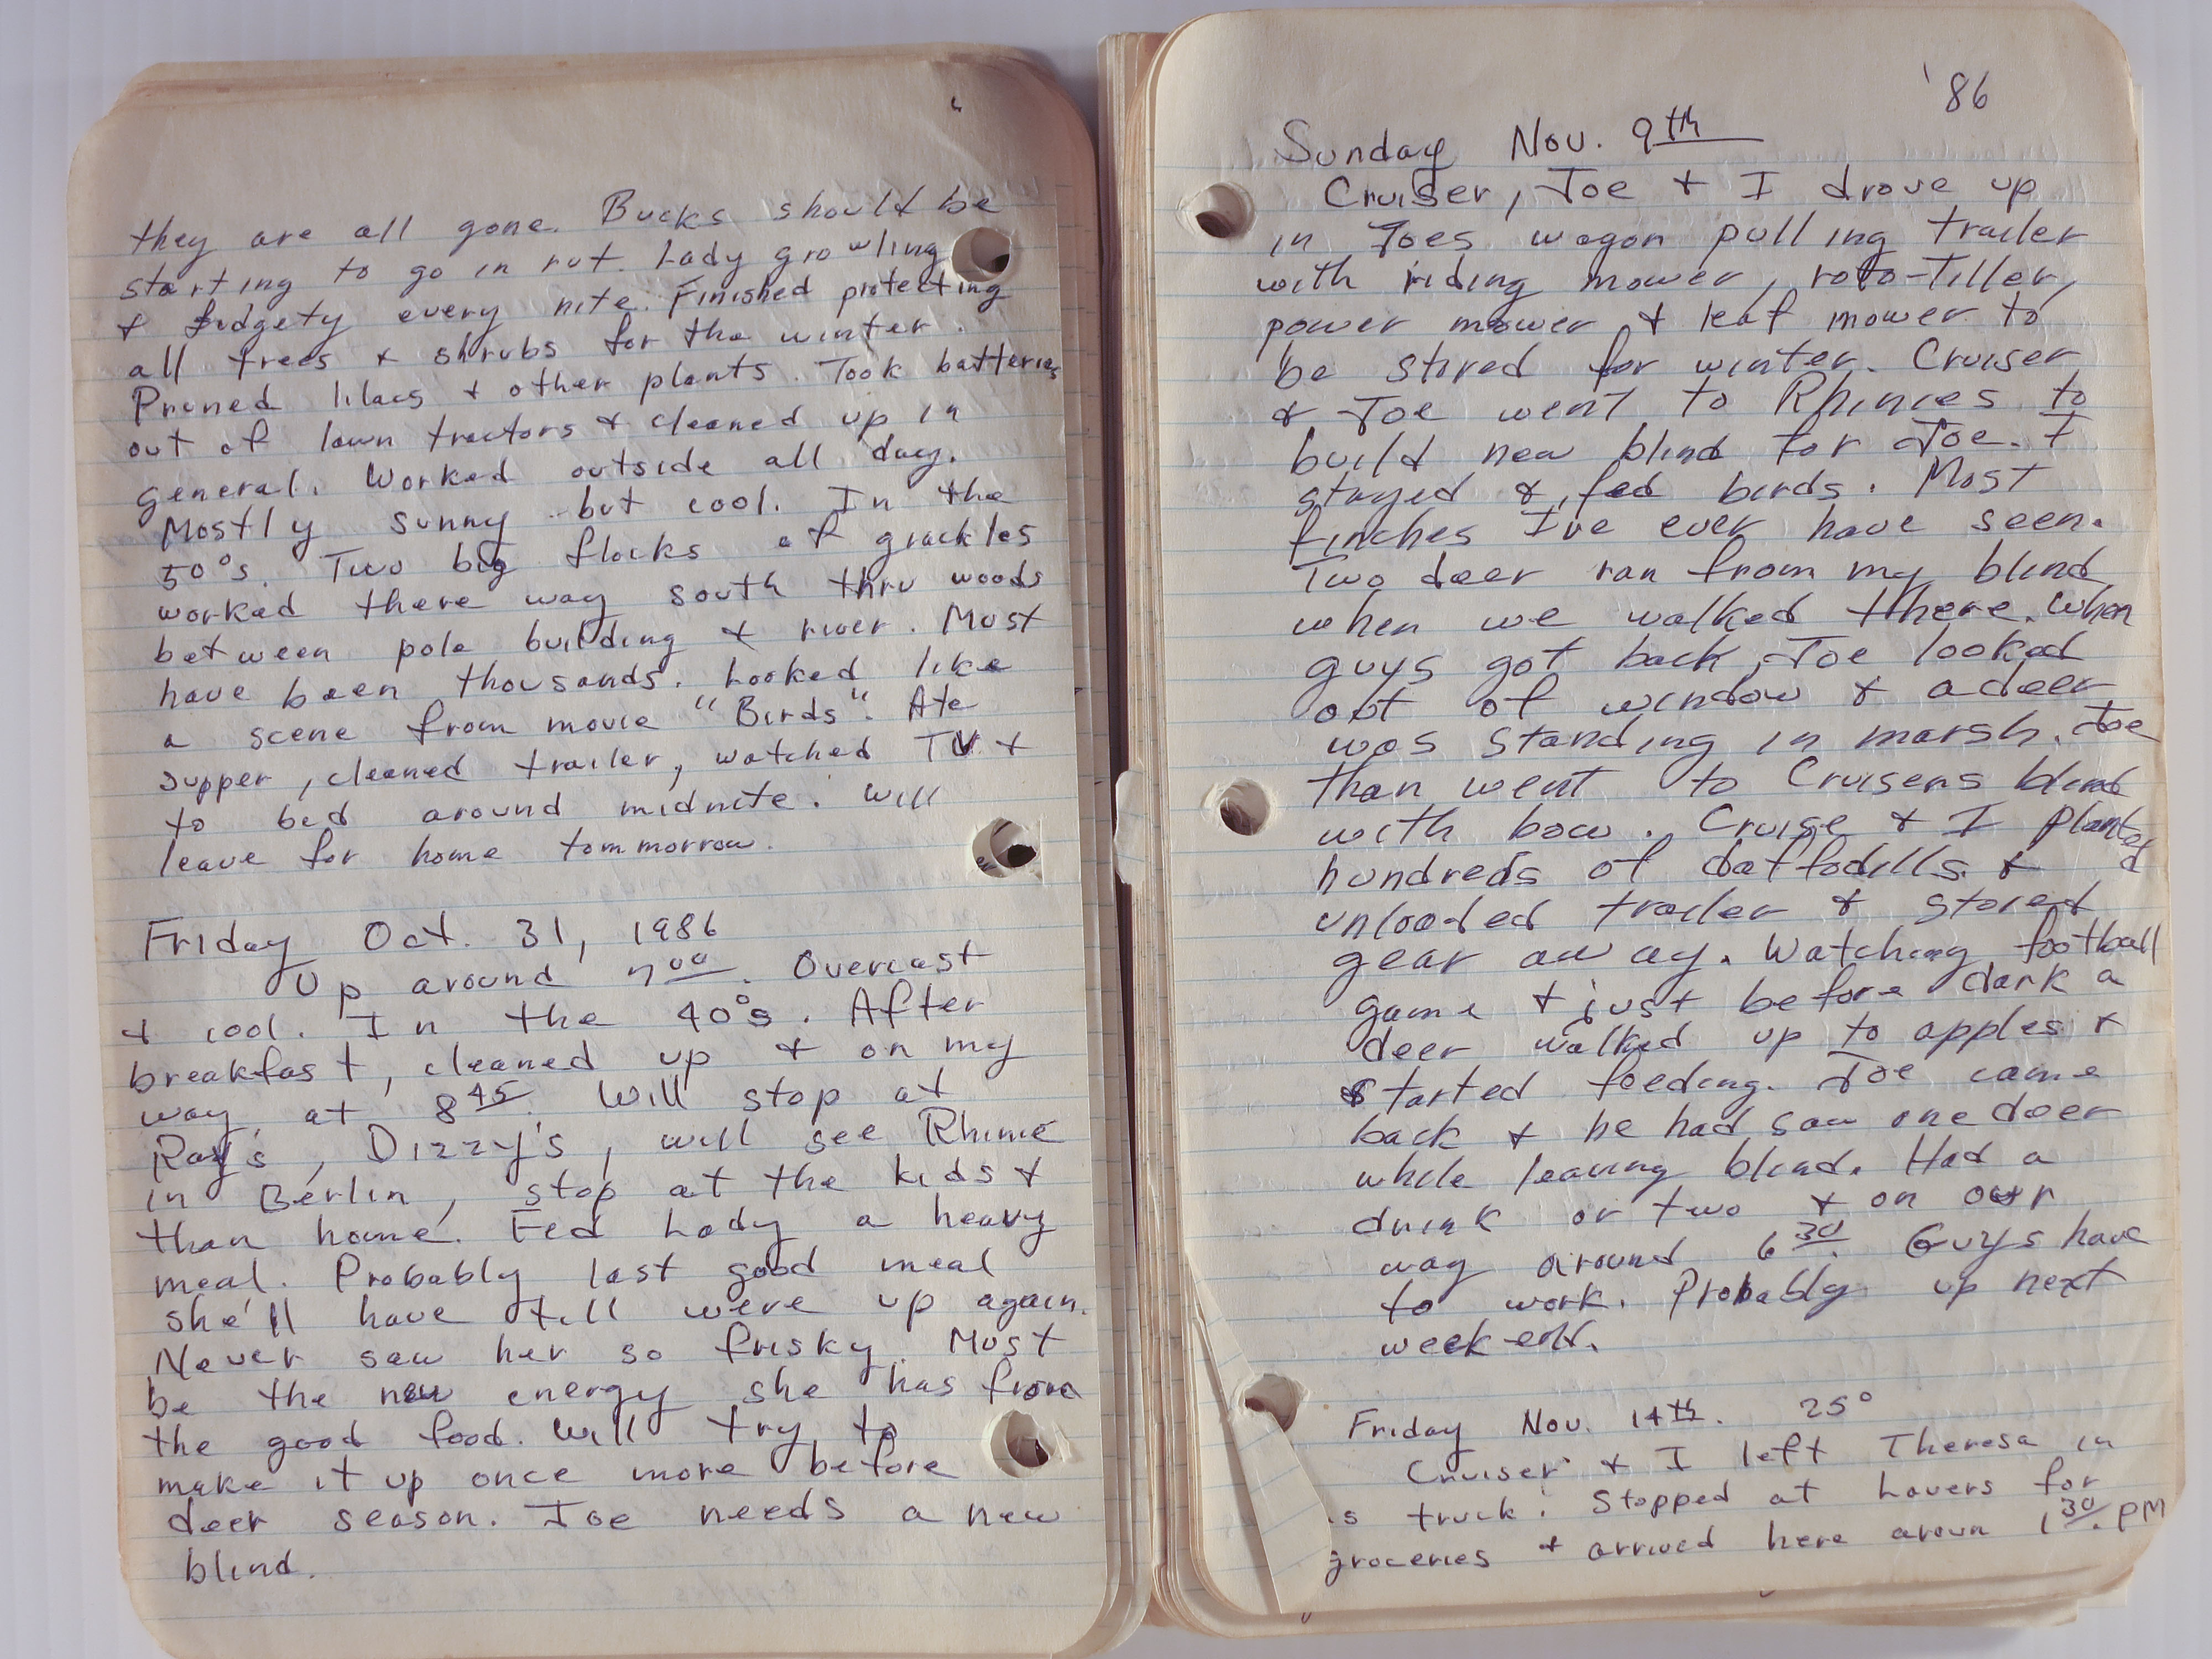 they are all gone. Bucks should be
starting to go in rut. Lady growling
& fidgety every nite. Finished protecting
all trees & shrubs for the winter.
Pruned lilacs & other plants. Took batteries
out of lawn tractors & cleaned up in
general. Worked outside all day.
Mostly sunny but cool. In the
50°s. Two big flocks of grackles
worked there way south thru woods
between pole building & river. Must
have been thousands. Looked like
a scene from movie "Birds". Ate
supper, cleaned trailer, watched TV &
to bed around midnite. Will
leave for home tommorrow.
Friday Oct. 31, 1986
Up around 7 00. Overcast
& cool. In the 40°s. After
breakfast, cleaned up & on my
way at 8 45. Will stop at
Ray's, Dizzy's, will see Rhinie
in Berlin, stop at the kids &
than home. Fed Lady a heavy
meal. Probably last good meal
she'll have till were up again.
Never saw her so frisky. Must
be the new energy she has from
the good food. Will try to
make it up once more before
deer season. Joe needs a new
blind.
'86
Sunday Nov. 9th
Cruiser, Joe & I drove up
in Joes wagon pulling trailer
with riding mower, roto-tiller,
power mower & leaf mower to
be stored for winter. Cruiser
& Joe went to Rhinies to
build new blind for Joe. I
stayed & fed birds. Most
finches I've ever have seen.
Two deer ran from my blind
when we walked there. When
guys got back, Joe looked
out of window & a deer
was standing in marsh. Joe
than went to Cruisers blind
with bow. Cruise & I planted
hundreds of daffodills &
unloaded trailer & stored
gear away. Watching football
game & just before dark a
deer walked up to apples &
started feeding. Joe came
back & he had saw one deer
while leaving blind. Had a
drink or two & on our
way around 6 30. Guys have
to work. Probably up next
weekend.
Friday Nov. 14th. 25°
Cruiser & I left Theresa in
s truck. Stopped at Lavers for
groceries & arrived here aroun 1 30. PM